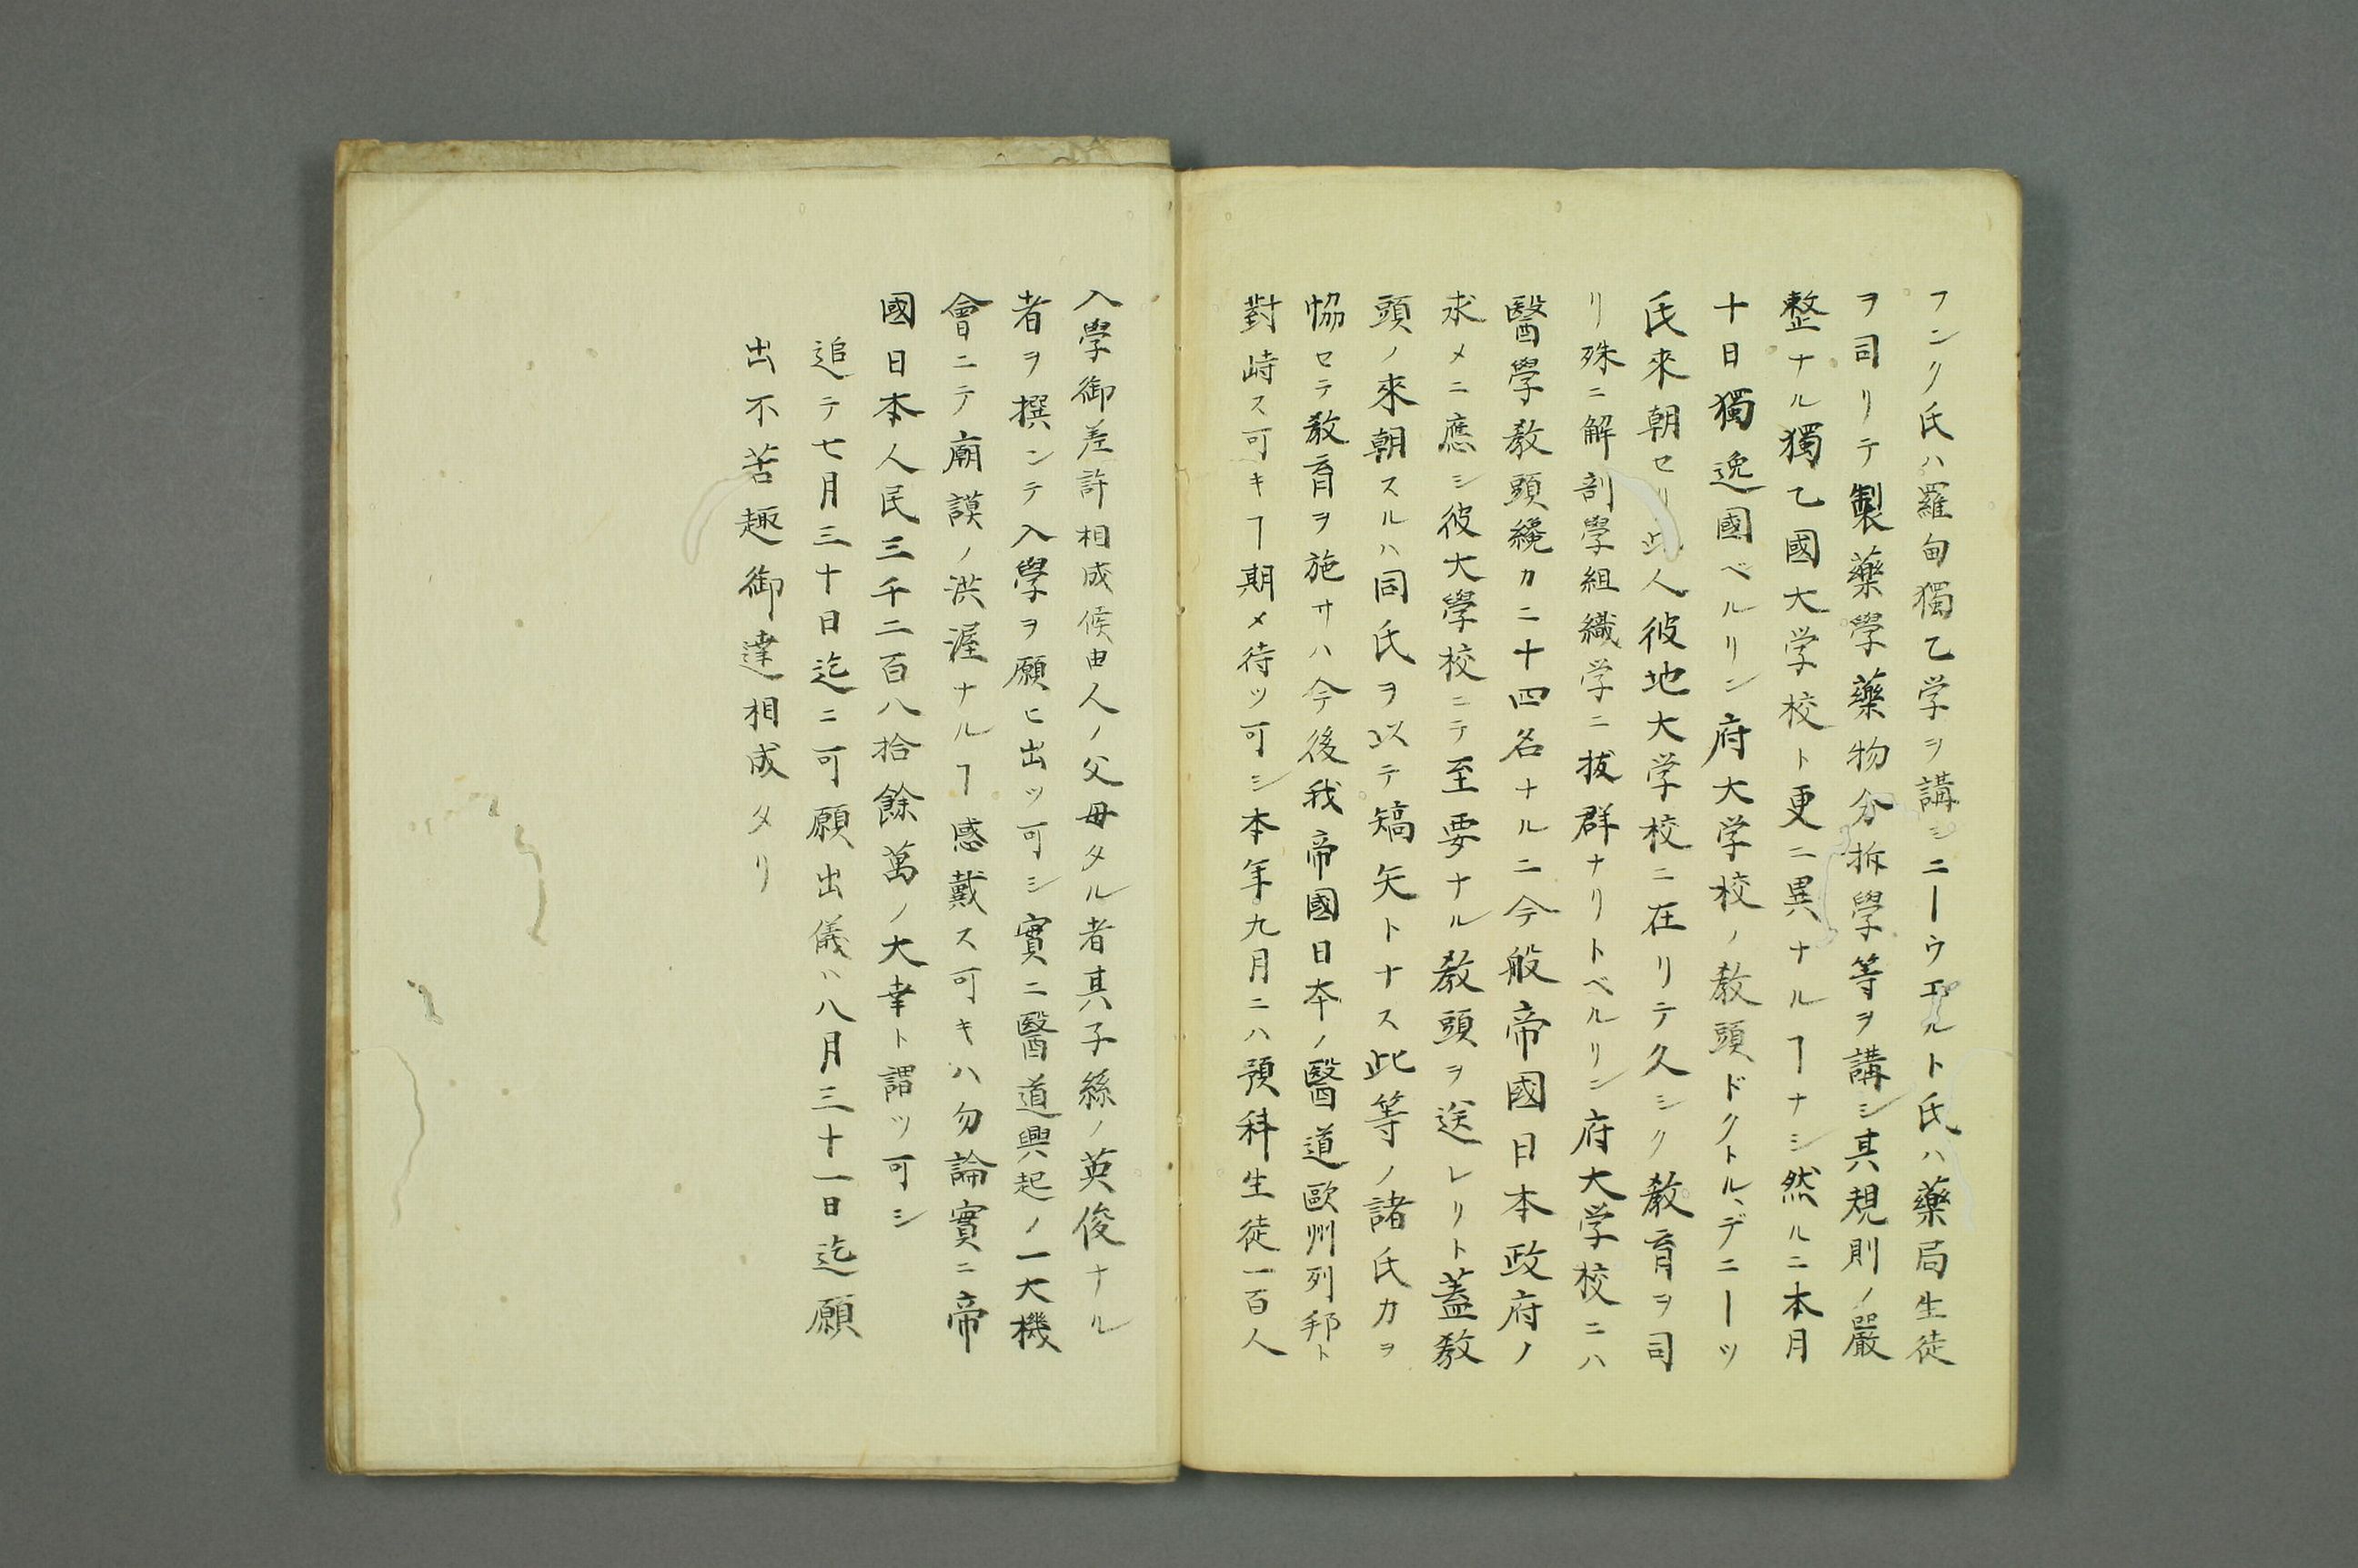 フンク氏ハ羅甸獨乙学ヲ講シニーウエルト氏ハ藥局生徒
ヲ司リテ製藥學藥物分拆學等ヲ講シ其規則ノ嚴
整ナル獨乙國大学校ト更ニ異ナルヿナシ然ルニ本月
十日獨逸國ベルリン府大学校ノ教頭ドクトル、デニーツ
氏來朝セリ此人彼地大学校ニ在リテ久シク教育ヲ司
リ殊ニ解剖學組織学ニ拔群ナリトベルリン府大学校ニハ
醫學教頭纔カニ十四名ナルニ今般帝國日本政府ノ
求メニ應シ彼大學校ニテ至要ナル教頭ヲ送レリト蓋教
頭ノ來朝スルハ同氏ヲ以テ矯矢トナス此等ノ諸氏カヲ
恊セテ教育ヲ施サハ今後我帝國日本ノ醫道歐州列邦ト
對峙ス可キヿ期メ待ツ可シ本年九月ニハ預科生徒一百人
入學御差許相成候由人ノ父母タル者其子絲ノ英俊ナル
者ヲ撰ンテ入學ヲ願ヒ出ツ可シ實ニ醫道興起ノ一大機
會ニテ廟謨ノ洪渥ナルヿ感戴ス可キハ勿論實ニ帝
國日本人民三千二百八拾餘萬ノ大幸ト謂ツ可シ
追テ七月三十日迄ニ可願出儀ハ八月三十一日迄願
出不苦趣御達相成タリ